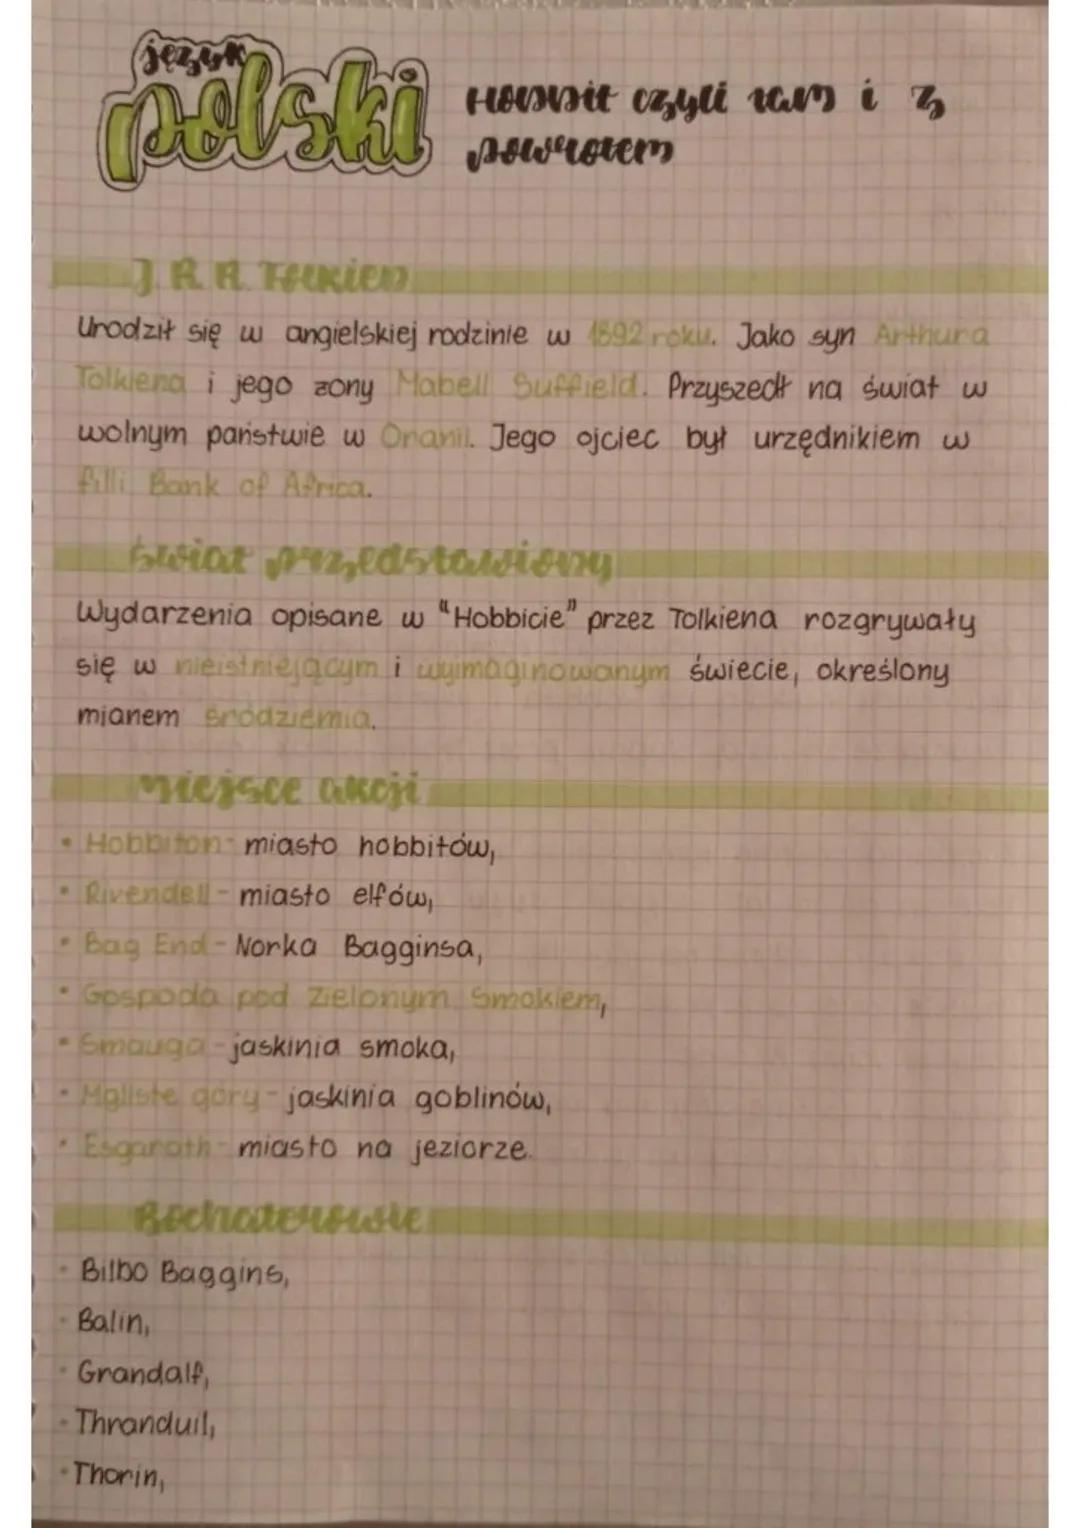 język
polski
Hobbit czyli tam i z
powrotem
J. R. R. Tolkien
Urodził się w angielskiej rodzinie w 1892 roku. Jako syn Arthura
Tolkiena i jego zony Mabell Suffield. Przyszedł na świat w
wolnym państwie w Oranii. Jego ojciec był urzędnikiem w
filli Bank of Africa.
świat przedstawiony
Wydarzenia opisane w "Hobbicie" przez Tolkiena rozgrywały
się w nieistniejącym i wyimaginowanym świecie, określony
mianem śródziemia.
miejsce akcji
• Hobbiton - miasto hobbitów,
• Rivendell - miasto elfów,
• Bag End - Norka Bagginsa,
• Gospoda pod Zielonym Smokiem,
• Smauga - jaskinia smoka,
• Mgliste góry - jaskinia goblinów,
• Esgaroth - miasto na jeziorze.
Bochaterowie
• Bilbo Baggins,
• Balin,
• Grandalf,
• Thranduil,
• Thorin,